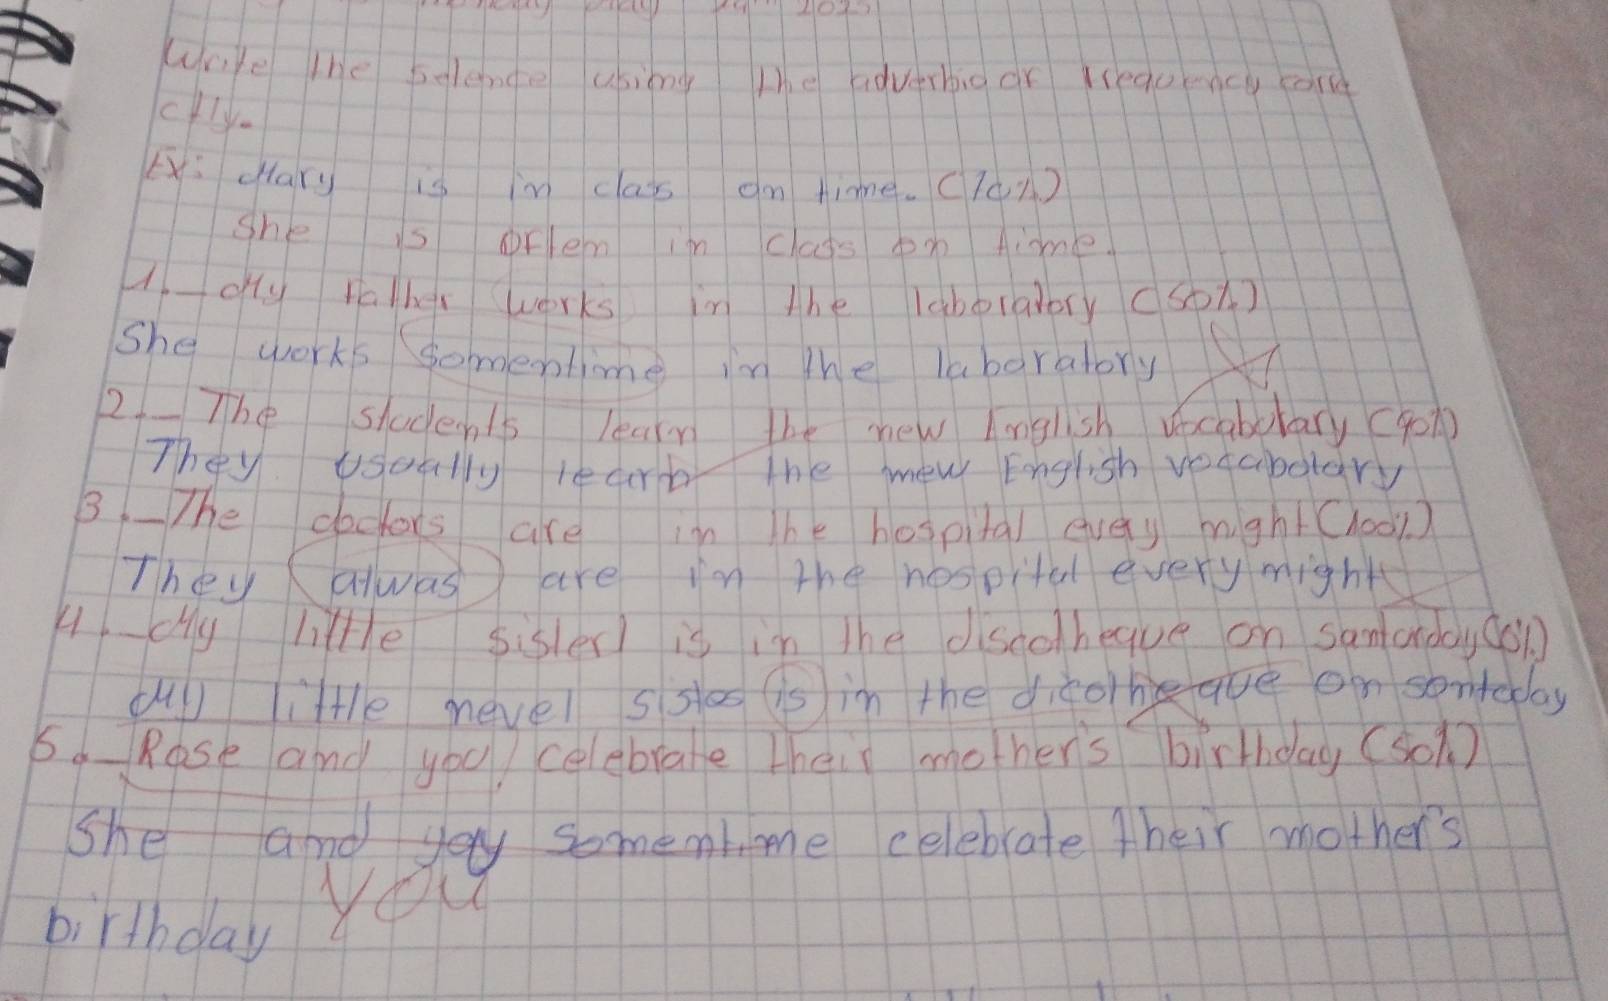 Write the setence using the adverbig of frequency corre
ctly.
Ex: Mary is in class on time. (70%)
She is often in class on time.
1._ My father works in the laboratory (50%)
She works somentime in the laboratory
2._ The students learn the new English vocabulary (90%)
They usually learn the new English vocabulary
3._ The doctors are in the hospital every night (100%)
They alwas are in the hospital every night
4._ My little sister is in the discotheque on santurday (0%)
My little nevel sistes is in the dicotheque on sonteday
5._ Rose and you celebrate their mother's birthday (50%)
She and yoy somentime celebrate their mother's
you
birthday